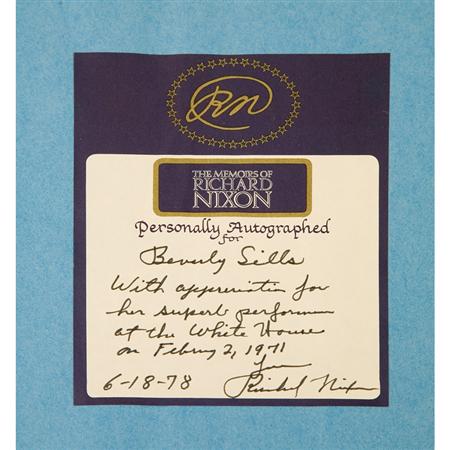 RN
THE MEMOIRS OF
RICHARD
NIXON
Personally Autographed
for
Beverly Sills
With appreciation for
her superb performance
at the White House
on February 2, 1971
from
6-18-78 Richard Nixon